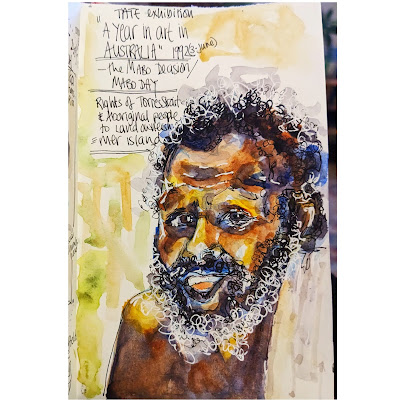 " TATE exhibition
"A Year in art in
AUSTRALIA" 1992 (3-June)
- the MABO Decision/
MABO DAY
Rights of Torres Strait
& Aboriginal people
to Land ownership
= Mer island